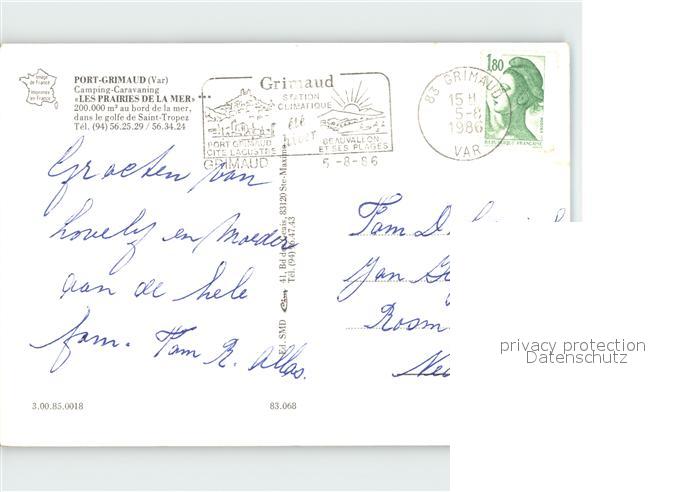 Image
de France
Imprimées
en France
PORT-GRIMAUD (Var)
Camping-Caravaning
«LES PRAIRIES DE LA MER»
200.000 m² au bord de la mer,
dans le golfe de Saint-Tropez
Tél. (94) 56.25.29 / 56.34.24
Grimaud
STATION
CLIMATIQUE
PORT GRIMAUD
CITE LACUSTRE
BEAUVALLON
ET SES PLAGES
GRIMAUD
5-8-86
83 GRIMAUD
15 H
5-8
1986
VAR
1,80
REPUBLIQUE FRANÇAISE
Groeten van
Lovely en Moeder
aan de hele
fam. Fam R.
Fam D.
Jan
Rosm
83120 Ste-Maxime
Tél. (94) 96.47.43
Ed. SMD
3.00.85.0018
83.068
privacy protection
Datenschutz